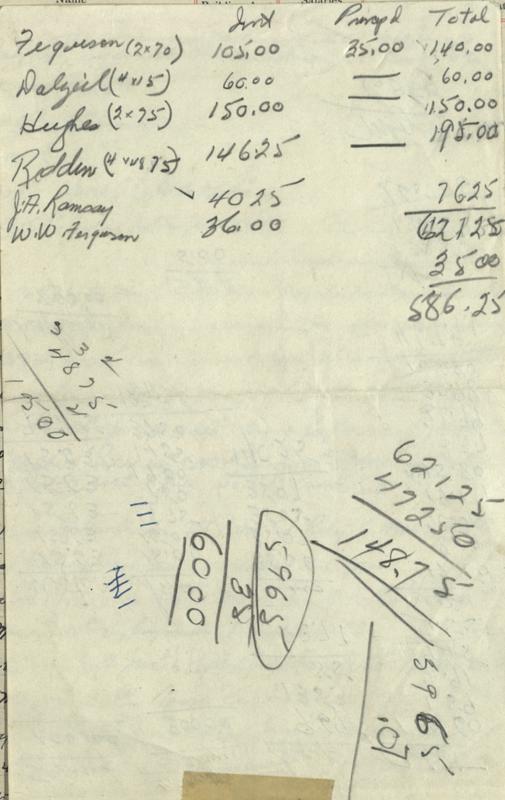 Name Salaries
Int Princpd Total
Ferguson (2x70) 105.00 35.00 140.00
Dalziel (4x15) 60.00 — 60.00
Hughes (2x75) 150.00 — 150.00
Redden (4x4875) 14625 — 195.00
J.A. Ramsay ✓ 4025 7625
W.W Ferguson 36.00 62125
3500
586.25
3 3 2
4875
4
19500
62125
47250
148.75
5965
38
6000
5965
.07